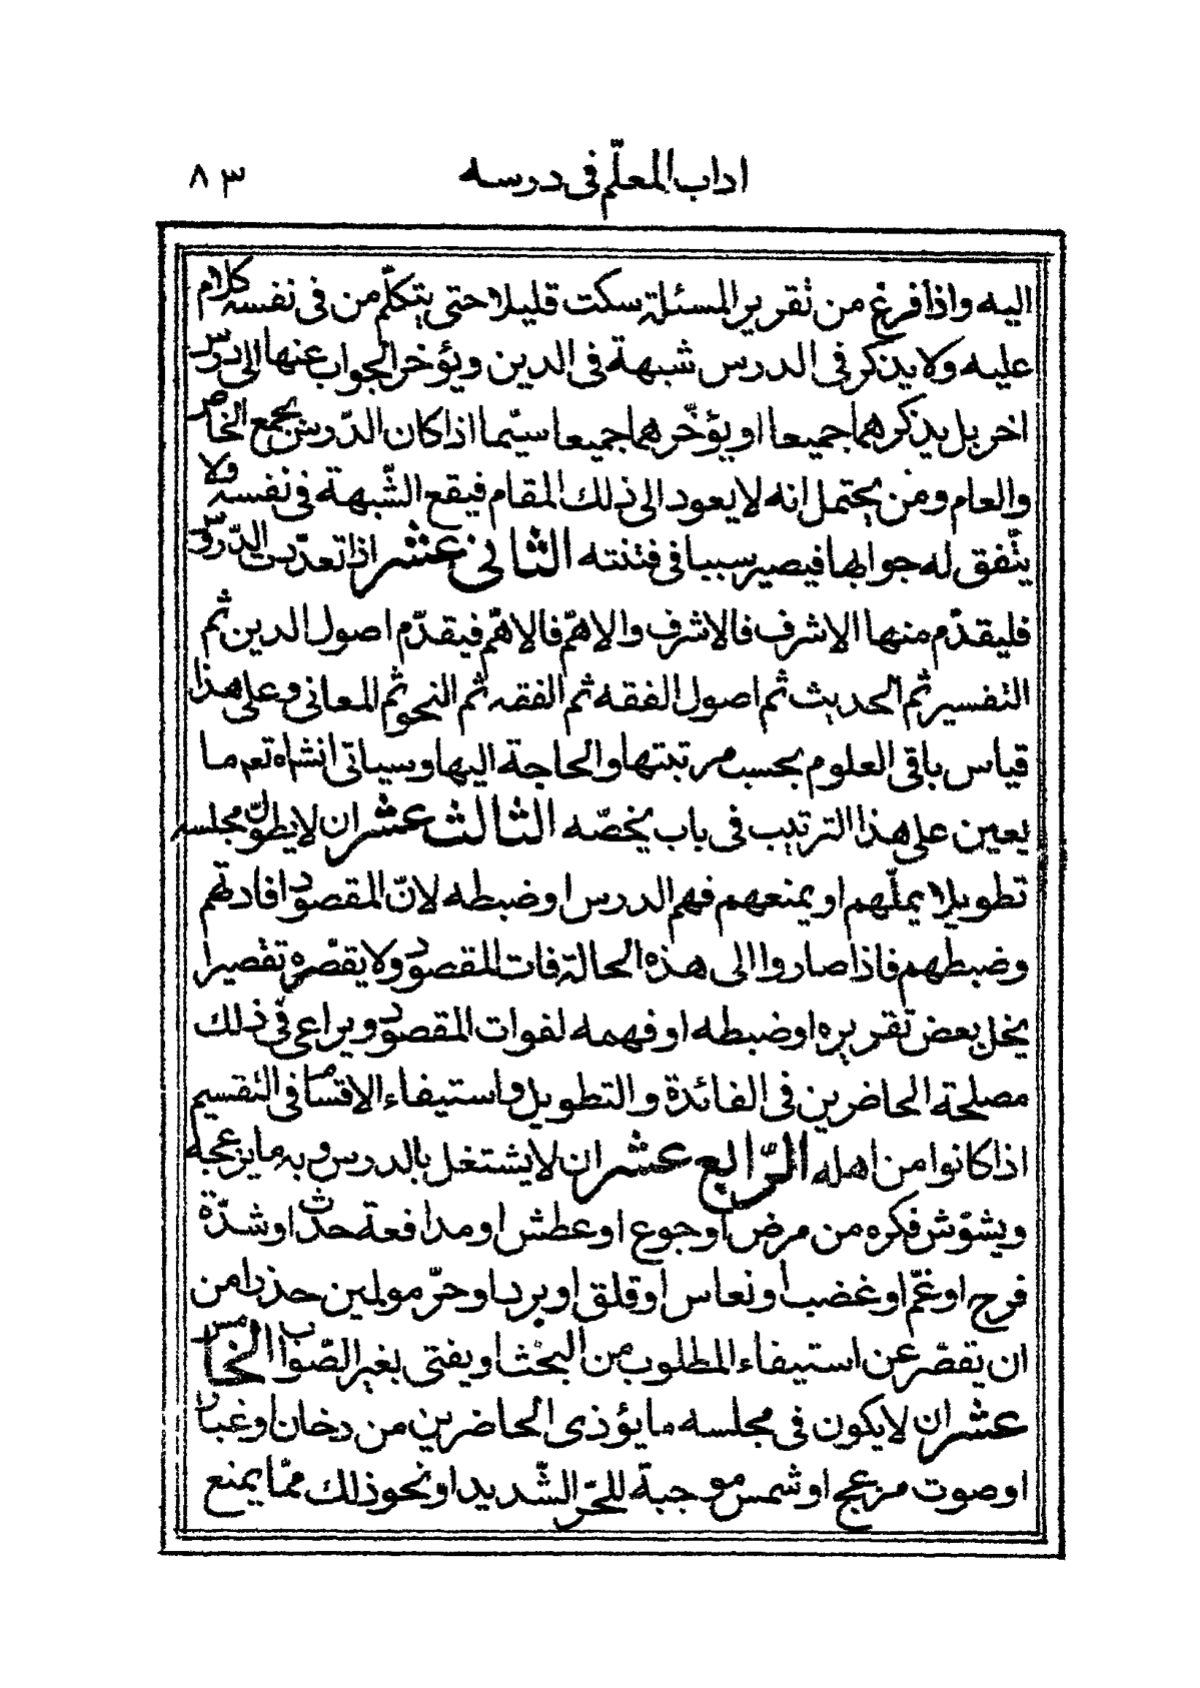 اداب المعلّم فى درسه ٨٣
اليه واذا فرغ من تقرير المسئلة سكت قليلا حتى يتكلّم من فى نفسه كلام
عليه ولا يذكر فى الدرس شبهة فى الدين ويؤخر الجواب عنها الى درس
اخر بل يذكرهما جميعا او يؤخّرهما جميعا سيّما اذا كان الدّرس يجمع الخاص
والعام ومن يحتمل انه لا يعود الى ذلك المقام فيقع الشّبهة فى نفسه ولا
يتّفق له جوابها فيصير سببا فى فتنته الثانى عشر اذا تعدّدت الدّروس
فليقدّم منها الاشرف فالاشرف والاهمّ فالاهمّ فيقدّم اصول الدين ثم
التفسير ثم الحديث ثم اصول الفقه ثم الفقه ثم النحو ثم المعانى وعلى هذا
قياس باقى العلوم بحسب مرتبتها والحاجة اليها وسياتى انشاء تعم ما
يعين على هذا الترتيب فى باب يخصّه الثالث عشر ان لا يطوّل مجلسه
تطويلا يملّهم او يمنعهم فهم الدرس او ضبطه لانّ المقصود افادتهم
وضبطهم فاذا صاروا الى هذه الحالة فات المقصود ولا يقصّره تقصيرا
يخل بعض تقريره او ضبطه او فهمه لفوات المقصود ويراعى فى ذلك
مصلحة الحاضرين فى الفائدة والتطويل واستيفاء الاقسام فى التقسيم
اذا كانوا من اهله الرّابع عشر ان لا يشتغل بالدرس وبه ما يزعجه
ويشوّش فكره من مرض او جوع او عطش او مدافعة حدث او شدّة
فرح او غمّ او غضب او نعاس او قلق او برد او حرّ مولمين حذرا من
ان يقصّر عن استيفاء المطلوب من البحث او يفتى بغير الصّواب الخامس
عشر ان لا يكون فى مجلسه ما يؤذى الحاضرين من دخان او غبار
او صوت مزعج او شمس موجبة للحرّ الشّديد او نحو ذلك ممّا يمنع